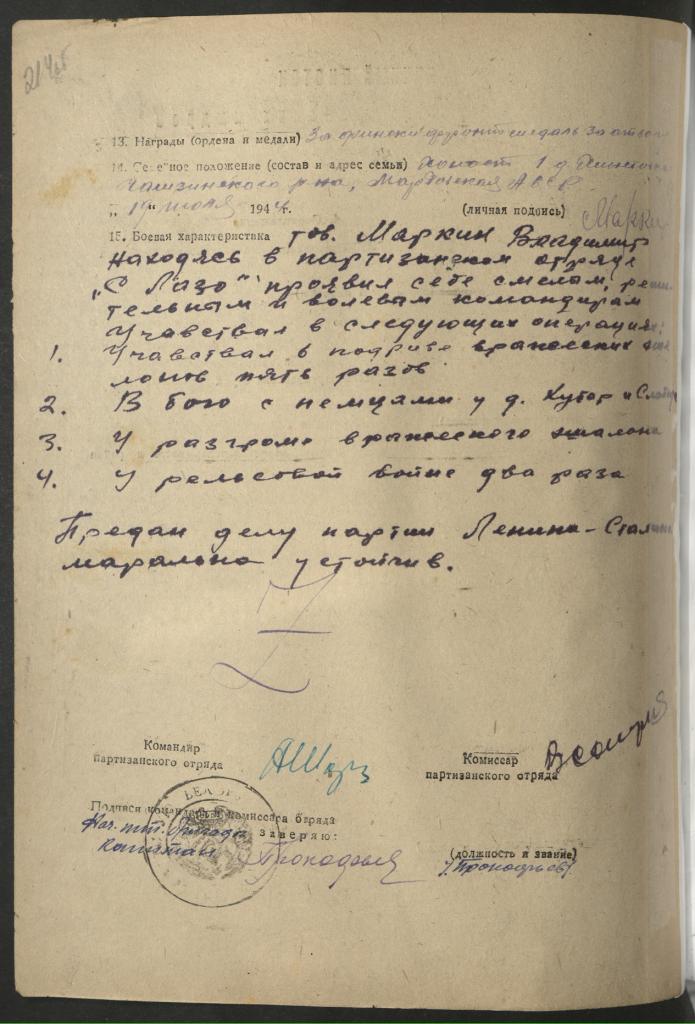 13. Награды (ордена и медали) За финский фронт медаль За отвагу
14. Семейное положение (состав и адрес семьи) Холост 1 д.
района, Мордовская АССР
„14" июля 1944 г. (личная подпись) Марки
15. Боевая характеристика тов. Маркин Владимир
находясь в партизанском отряде
„С Лазо" проявил себе смелам, реши
тельным и волевам командирам
Учавствал в следующих операциях:
1. Учавствал в подриве вражеских эше
лонов пять разов
2. В бою с немцами у д. Хутор и
3. У разгроме вражеского эшалона
4. У рельсовой войне два раза
Предан делу партии Ленина-Сталина
марально устойчив.
Командир
партизанского отряда
Комиссар
партизанского отряда
Подписи командира и комиссара отряда
Нач. шт. бригады заверяю:
капитан Прокофьев
(должность и звание)
/Прокофьев/